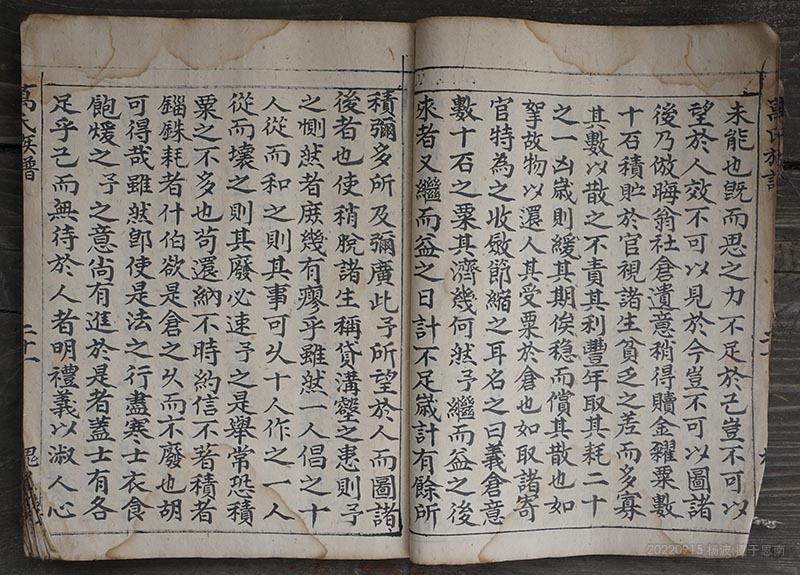 未能也既而思之力不足於己豈不可以
望於人效不可以見於今豈不可以圖諸
後乃倣晦翁社倉遺意稍得贖金糴粟數
十石積貯於官視諸生貧乏之差而多寡
其數以散之不責其利豐年取其耗二十
之一凶歲則緩其期俟稔而償其散也如
拏故物以還人其受粟於倉也如取諸寄
官特為之收斂節縮之耳名之曰義倉意
數十石之粟其濟幾何然予繼而益之後
來者又繼而益之日計不足歲計有餘所
積彌多所及彌廣此予所望於人而圖諸
後者也使稍脫諸生稱貸溝壑之患則予
之惻然者庶幾有瘳乎雖然一人倡之十
人從而和之則其事可久十人作之一人
從而壞之則其廢必速予之是舉常恐積
粟之不多也苟還納不時約信不著積者
錙銖耗者什伯欲是倉之久而不廢也胡
可得哉雖然卽使是法之行盡寒士衣食
飽煖之予之意尙有進於是者蓋士有各
足乎己而無待於人者明禮義以淑人心
萬氏族譜
二十一
20220915 杨波 摄于思南